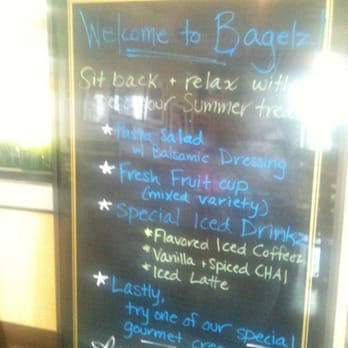 Welcome to Bagelz!
Sit back + relax with
our Summer
* Pasta Salad
w/ Balsamic Dressing
* Fresh Fruit cup
(mixed variety)
* Special Iced Drinkz
* Flavored Iced Coffeez
* Vanilla + Spiced CHAI
* Iced Latte
* Lastly,
try one of our special
gourmet